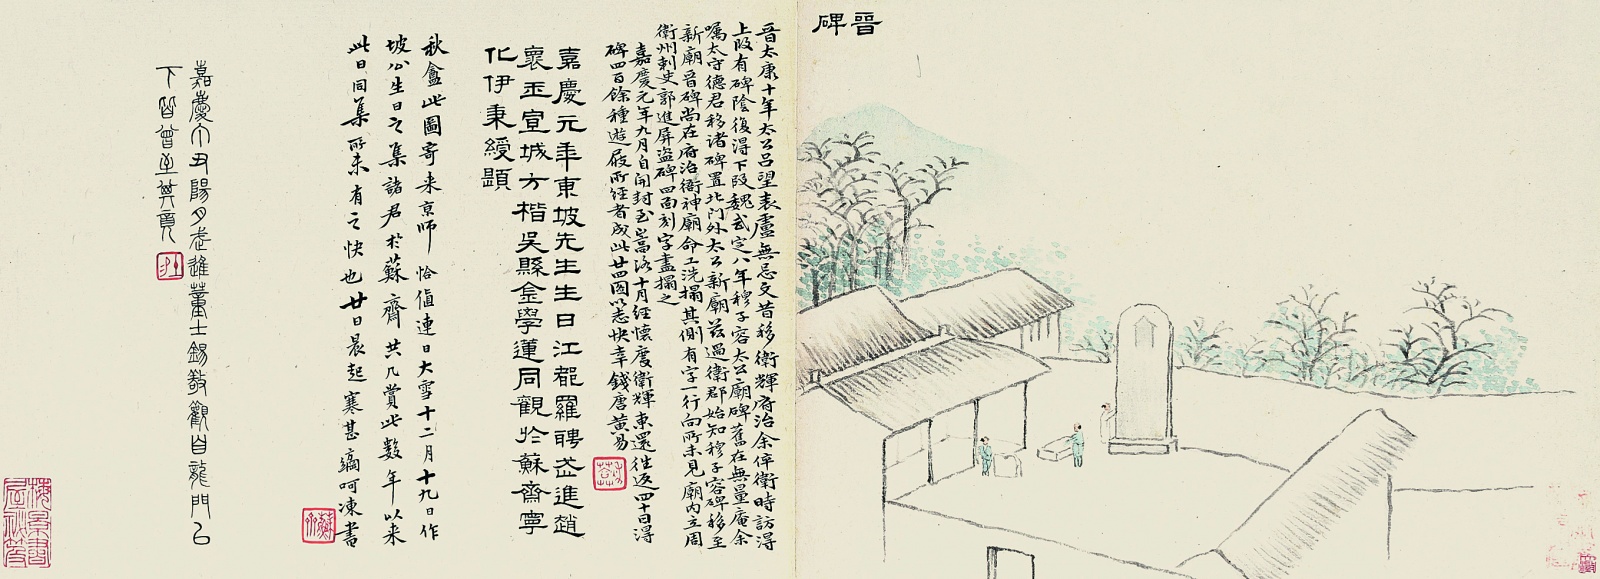 晉碑
晉太康十年太公呂望表盧無忌文昔移衛輝府治余倅衛時訪得
上段有碑陰復得下段魏武定八年穆子容太公廟碑舊在無量庵余
囑太守德君移諸碑置北門外太公新廟茲過衛郡始知穆子容碑移至
新廟晉碑尚在府治衙神廟命工洗搨其側有字一行向所未見廟內立周
衛州刺史郭進屏盜碑四面刻字盡搨之
嘉慶元年九月自開封至嵩洛十月經懷慶衛輝東還往返四十日得
碑四百餘種遊屐所經者成此廿四圖以志快幸錢唐黃易
嘉慶元年東坡先生生日江都羅聘武進趙
褱玉宣城方楷吳縣金學蓮同觀於蘇齋寧
化伊秉綬題
秋盦此圖寄來京師恰值連日大雪十二月十九日作
坡公生日之集諸君於蘇齋共几賞此數年以來
此日同集所未有之快也廿日晨起寒甚滴呵凍書
嘉慶丁丑陽月武進董士錫敬觀自龍門已
下皆曾至其竟